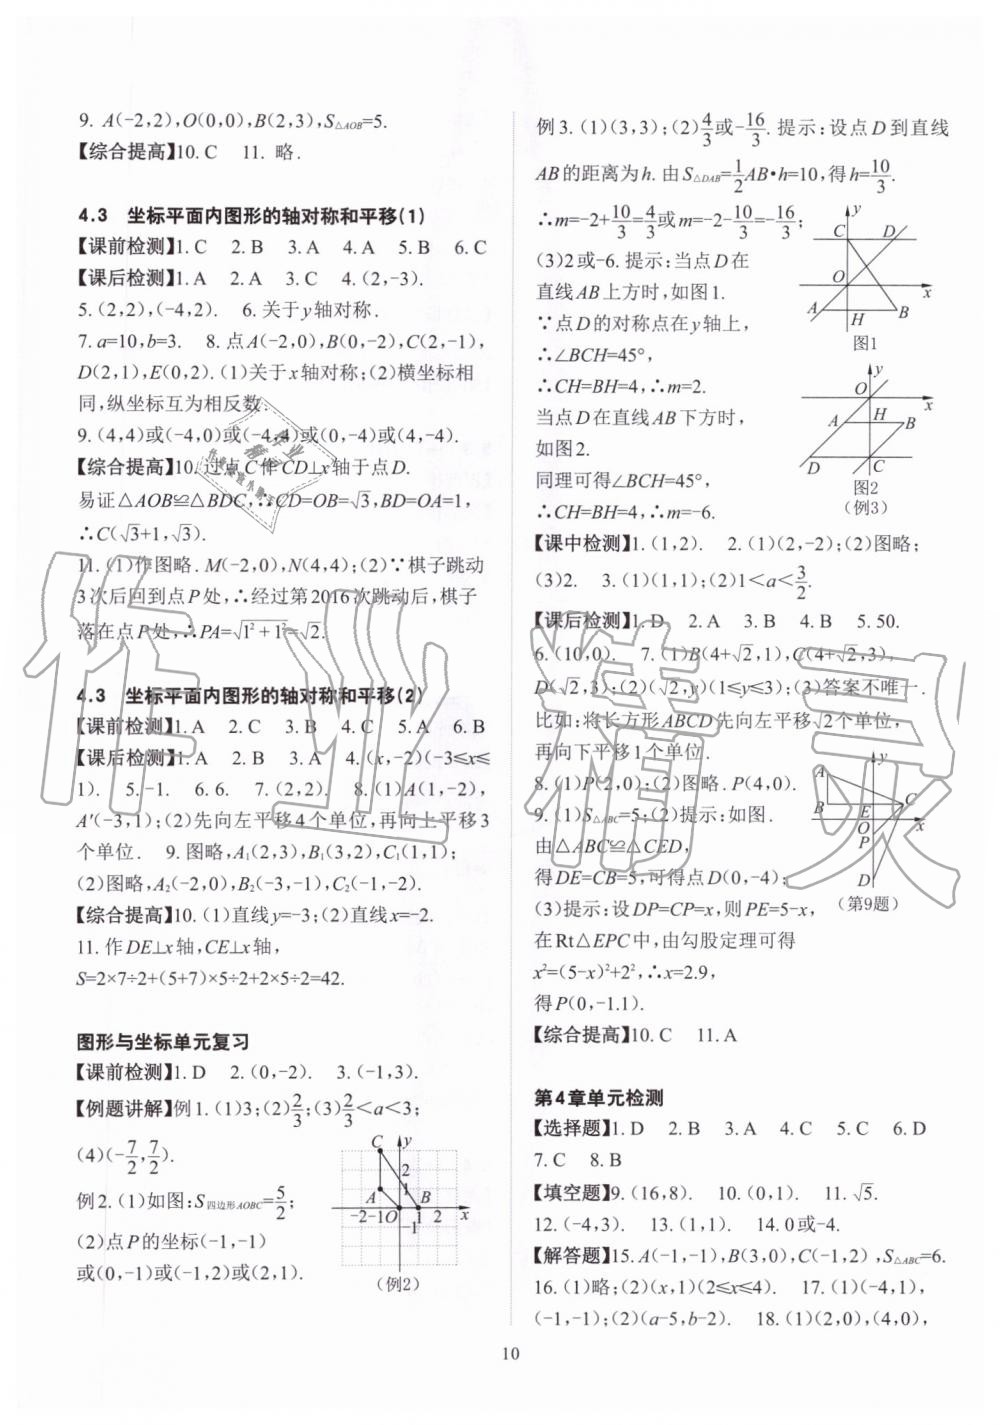 9. A(-2,2),O(0,0),B(2,3),S△AOB=5.
【综合提高】10. C 11. 略.
4.3 坐标平面内图形的轴对称和平移(1)
【课前检测】1. C 2. B 3. A 4. A 5. B 6. C
【课后检测】1. A 2. A 3. C 4. (2,-3).
5. (2,2),(-4,2). 6. 关于y轴对称.
7. a=10,b=3. 8. 点A(-2,0),B(0,-2),C(2,-1),
D(2,1),E(0,2). (1)关于x轴对称;(2)横坐标相
同,纵坐标互为相反数.
9. (4,4)或(-4,0)或(-4,4)或(0,-4)或(4,-4).
【综合提高】10. 过点C作CD⊥x轴于点D.
易证△AOB≌△BDC,∴CD=OB=√3,BD=OA=1,
∴C(√3+1,√3).
11. (1)作图略. M(-2,0),N(4,4);(2)∵棋子跳动
3次后回到点P处,∴经过第2016次跳动后,棋子
落在点P处,∴PA=√1²+1²=√2.
4.3 坐标平面内图形的轴对称和平移(2)
【课前检测】1. A 2. C 3. C 4. C 5. A 6. B
【课后检测】1. A 2. B 3. A 4. (x,-2)(-3≤x≤
1). 5. -1. 6. 6. 7. (2,2). 8. (1)A(1,-2),
A′(-3,1);(2)先向左平移4个单位,再向上平移3
个单位. 9. 图略,A₁(2,3),B₁(3,2),C₁(1,1);
(2)图略,A₂(-2,0),B₂(-3,-1),C₂(-1,-2).
【综合提高】10. (1)直线y=-3;(2)直线x=-2.
11. 作DE⊥x轴,CE⊥x轴,
S=2×7÷2+(5+7)×5÷2+2×5÷2=42.
图形与坐标单元复习
【课前检测】1. D 2. (0,-2). 3. (-1,3).
【例题讲解】例1. (1)3;(2)2/3;(3)2/3<a<3;
(4)(-7/2,7/2).
例2. (1)如图:S四边形AOBC=5/2;
(2)点P的坐标(-1,-1)
或(0,-1)或(-1,2)或(2,1).
C y
2
A 1 B
-2 -1 O 1 2 x
-1
(例2)
例3. (1)(3,3);(2)4/3或-16/3. 提示:设点D到直线
AB的距离为h. 由S△DAB=1/2AB•h=10,得h=10/3.
∴m=-2+10/3=4/3或m=-2-10/3=-16/3;
(3)2或-6. 提示:当点D在
直线AB上方时,如图1.
∵点D的对称点在y轴上,
∴∠BCH=45°,
∴CH=BH=4,∴m=2.
当点D在直线AB下方时,
如图2.
同理可得∠BCH=45°,
∴CH=BH=4,∴m=-6.
y
C D
O
x
A H B
图1
y
O
x
A H B
D C
图2
(例3)
【课中检测】1. (1,2). 2. (1)(2,-2);(2)图略;
(3)2. 3. (1)(1,1);(2)1<a<3/2.
【课后检测】1. D 2. A 3. B 4. B 5. 50.
6. (10,0). 7. (1)B(4+√2,1),C(4+√2,3),
D(√2,3);(2)(√2,y)(1≤y≤3);(3)答案不唯一.
比如:将长方形ABCD先向左平移√2个单位,
再向下平移1个单位.
8. (1)P(2,0);(2)图略. P(4,0).
9. (1)S△ABC=5;(2)提示:如图.
由△ABC≌△CED,
得DE=CB=5,可得点D(0,-4);
(3)提示:设DP=CP=x,则PE=5-x,
在Rt△EPC中,由勾股定理可得
x²=(5-x)²+2²,∴x=2.9,
得P(0,-1.1).
y
A
B E C
O x
P
D
(第9题)
【综合提高】10. C 11. A
第4章单元检测
【选择题】1. D 2. B 3. A 4. C 5. C 6. D
7. C 8. B
【填空题】9. (16,8). 10. (0,1). 11. √5.
12. (-4,3). 13. (1,1). 14. 0或-4.
【解答题】15. A(-1,-1),B(3,0),C(-1,2),S△ABC=6.
16. (1)略;(2)(x,1)(2≤x≤4). 17. (1)(-4,1),
(-1,-1);(2)(a-5,b-2). 18. (1)(2,0),(4,0),
10
作业精灵